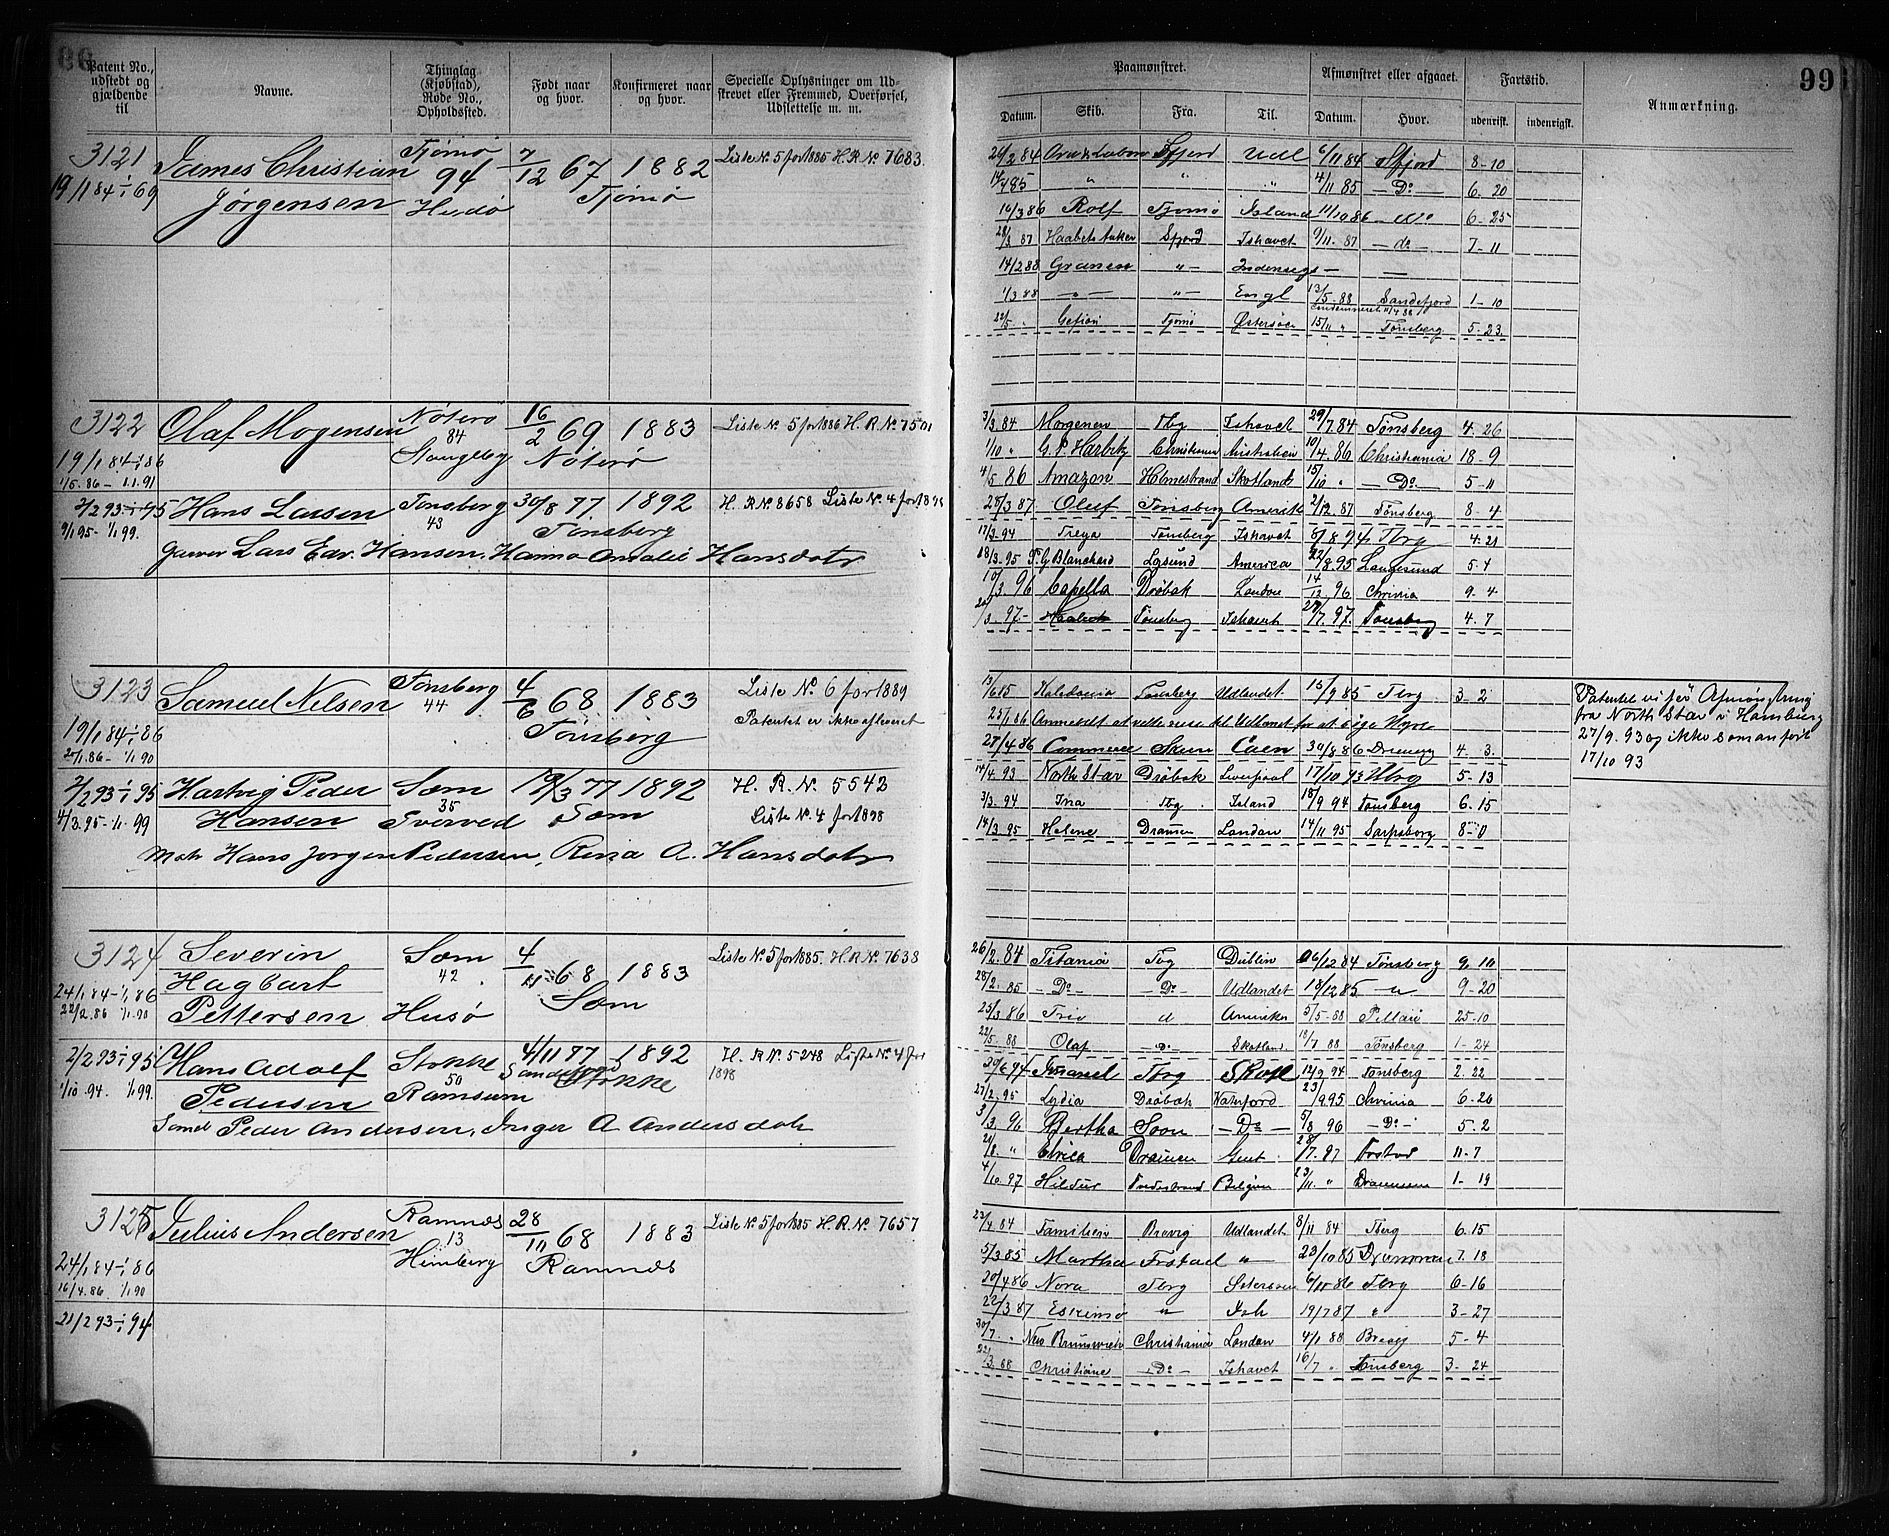 99
Patent No., udstedt og gjældende til
Navne.
Thinglag (Kjøbstad), Rode No., Opholdssted.
Født naar og hvor.
Konfirmeret naar og hvor.
Specielle Oplysninger om Udskrevet eller Fremmed, Overførsel, Udslettelse m. m.
Paamønstret.
Afmønstret eller afgaaet.
Fartstid.
Anmærkning.
Datum. Skib. Fra. Til. Datum. Hvor. udenrisk. indenrigsk.
3121 James Christian Tjømø 7/12 67 1882 Liste No. 5 for 1885 H.R. No. 7683
19/1 84 - 1/1 69 Jørgensen 94 Tjømø
24/2 84 Sfjord Udl 6/11 84 Sfjord 8-10
" " " 4/11 85 Do 6-20
16/3 86 Rolf Tjømø Island 11/10 86 6-25
28/3 87 Sfjord Ishavet 9/11 87 do 7-11
14/2 88 Granen " Indenrigs
1/3 88 " Engl 13/5 88 Sandefjord 1-10
22/5 Gefion Tjømø Østersøen 15/11 " Tønsberg 5-23
3122 Olaf Mogensen Nøterø 16/2 69 1883 Liste No. 5 for 1886 H.R. No. 7501
84
19/1 84 - 1/1 86 Nøterø
1/5 86 - 1.1.91
2/2 93 - 1/1 95 Hans Larsen Tønsberg 30/8 77 1892 H.R. No. 8658 Liste No. 4 for 1898
9/1 95 - 1/1 99. 43 Tønsberg
Lars Edv. Hansen, Hanna Amalie Hansdotr
3/3 84 Morgenen Tbg Ishavet 29/7 84 Tønsberg 4.26
1/10 " G. P. Harbitz Christiania Australien 10/4 86 Christiania 18-9
4/5 86 Amazon Holmestrand Skotland 15/10 " Do 5-11
28/3 87 Oluf Tønsberg Amerik 2/12 87 Tønsberg 8-4
17/3 94 Freya Tønsberg Ishavet 8/8 94 Tbrg 4.21
18/3 95 P. G Blanchard Lgsund America 22/8 95 Langesund 5.4
10/3 96 Capella Drøbak London 14/12 96 Chrinia 9.4
3. 97 Tønsberg Ishavet 97. Tønsberg 4.7
3123 Samuel Nilsen Tønsberg 4/6 68 1883 Liste No. 6 for 1889
44 Patentet er ikke afleveret
19/1 84 - 1/1 86 Tønsberg
20/1 86 - 1/1 90
2/2 93 - 1/1 95 Hartvig Peder Sæm 77 1892 H.R. No. 5542
4/3 95 - 1/1 99 Hansen 35 Tverved Sæm Liste No. 4 for 1898
Hans Jørgen Pedersen, Rina A. Hansdotr
Kaledonia Tønsberg Udlandet 15/9 85 Tbrg 3-2
25/1 86 Anmeldt at ville reise til Udlandet for at søge Hyre
27/4 86 Commerce Skien Caen 30/8 86 4.3.
14/4 93 North Star Drøbak Liverpool 17/10 93 5-13
3/3 94 Ina Tbg Island 18/9 94 Tønsberg 6.15
14/3 95 Helene Drammen London 14/11 95 Sarpsborg 8-0
Patentet vi før Afmønstring
fra North Star i Hamburg
27/9. 93 og ikke som anført
17/10 93
3124 Severin Sæm 4/11 68 1883 Liste No. 5 for 1885. H.R. No. 7638
Hagbart 42
24/1 84 - 1/1 86 Pettersen Husø Sæm
22/2 86 1/1 90
2/2 93 - 1/1 95 Hans Adolf Stokke 4/11 77 1892 H. R No 5248 Liste No. 4 for 1898
1/10 94. 1/1 99. Pedersen 50 Ramsum Stokke
Peder Andersen, Inger A Andersdotr
26/2 84 Titania Tbg Dublin 6/12 84 Tønsberg 9.10
28/2 85 Do Do Udlandet 18/12 85 " 9-20
25/3 86 Trio " Amerika 5/5 88 Pillau 25-10
22/5 88 Olaf Do Skotland 18/7 88 Tønsberg 1-24
30/6 94 Tbrg Skotl 12/9 94 Tønsberg 2.22
27/2 95 Lydia Drøbak Waterford 23/9 95 Chrinia 6-26
3/3 96 Bertha Soon Do 5/8 96 Do 5.2
Elrica Drammen Gent 28/7 97 11-7
4/10 97 Hildur Tvedestrand Belgien 23/11 " Drammen 1-19
3125 Julius Andersen Ramnæs 28/11 68 1883 Liste No. 5 for 1885 H.R. No. 7657
13
24/1 84 - 1/1 86 Himberg Ramnæs
16/4 86. 1/1 90
21/2 93 - 1/1 94
23/4 84 Familien Brevig Udlandet 8/11 84 Tberg 6.15
5/3 85 Martha " 23/10 85 Drammen 7.18
20/4 86 Nora Tbrg Østersøen 6/11 86 Tbrg 6-16
22/3 87 Eskimo " Ish 19/7 87 " 3-27
30/7 " New Brunswick Christiania London 4/1 88 Brevig 5-4
22/3 88 Christiane Do Ishavet 16/7 " Tønsberg 3-24